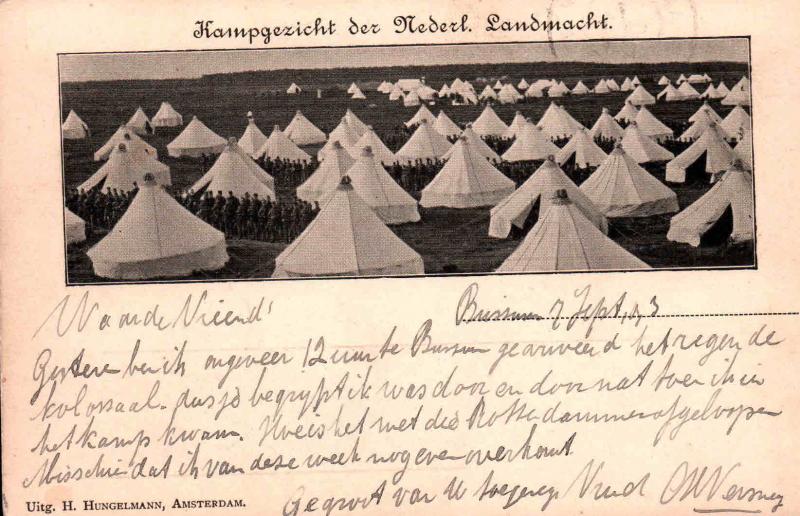 Kampgezicht der Nederl. Landmacht.
Waarde Vriend'
Bussum 7 Sept, 03
Gistere ben ik ongeveer 12 uur te Bussum gearriveerd het regende
kolossaal. dus je begrypt ik was door en door nat toen ik in
het kamp kwam. Hoe is het met die Rotterdammer afgeloopen
Misschie dat ik van deze week nog even overkomt
Gegroet van U toegeneg Vriend
Uitg. H. Hungelmann, Amsterdam.